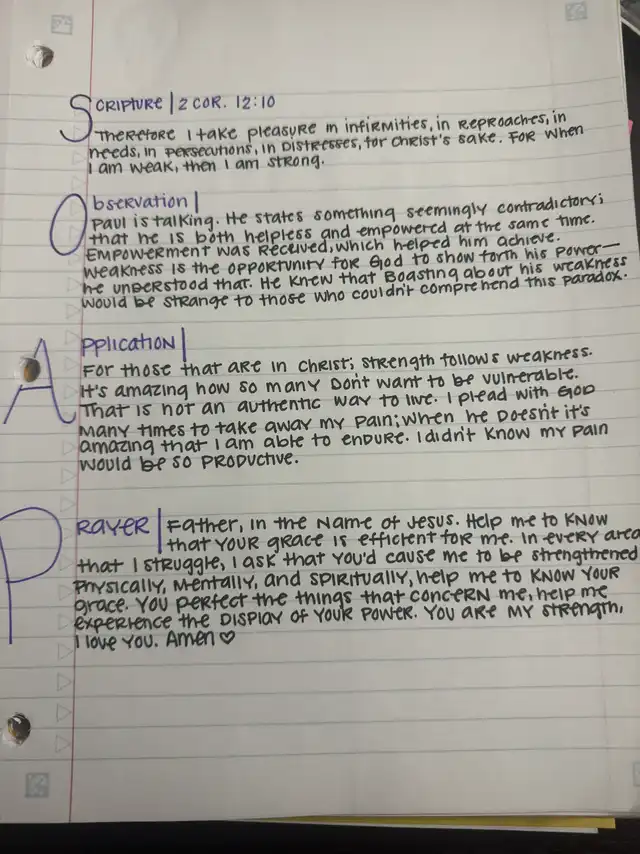 SCRIPTURE | 2 COR. 12:10
Therefore I take pleasure in infirmities, in reproaches, in
needs, in persecutions, in distresses, for Christ's sake. For when
I am weak, then I am strong.
Observation |
Paul is talking. He states something seemingly contradictory;
that he is both helpless and empowered at the same time.
Empowerment was received, which helped him achieve.
Weakness is the opportunity for God to show forth his power—
he understood that. He knew that boasting about his weakness
would be strange to those who couldn't comprehend this paradox.
Application |
For those that are in Christ; strength follows weakness.
It's amazing how so many don't want to be vulnerable.
That is not an authentic way to live. I plead with God
many times to take away my pain; when he doesn't it's
amazing that I am able to endure. I didn't know my pain
would be so productive.
Prayer | Father, in the name of Jesus. Help me to know
that your grace is efficient for me. In every area
that I struggle, I ask that you'd cause me to be strengthened
physically, mentally, and spiritually, help me to know your
grace. You perfect the things that concern me, help me
experience the display of your power. You are my strength,
I love you. Amen ♡